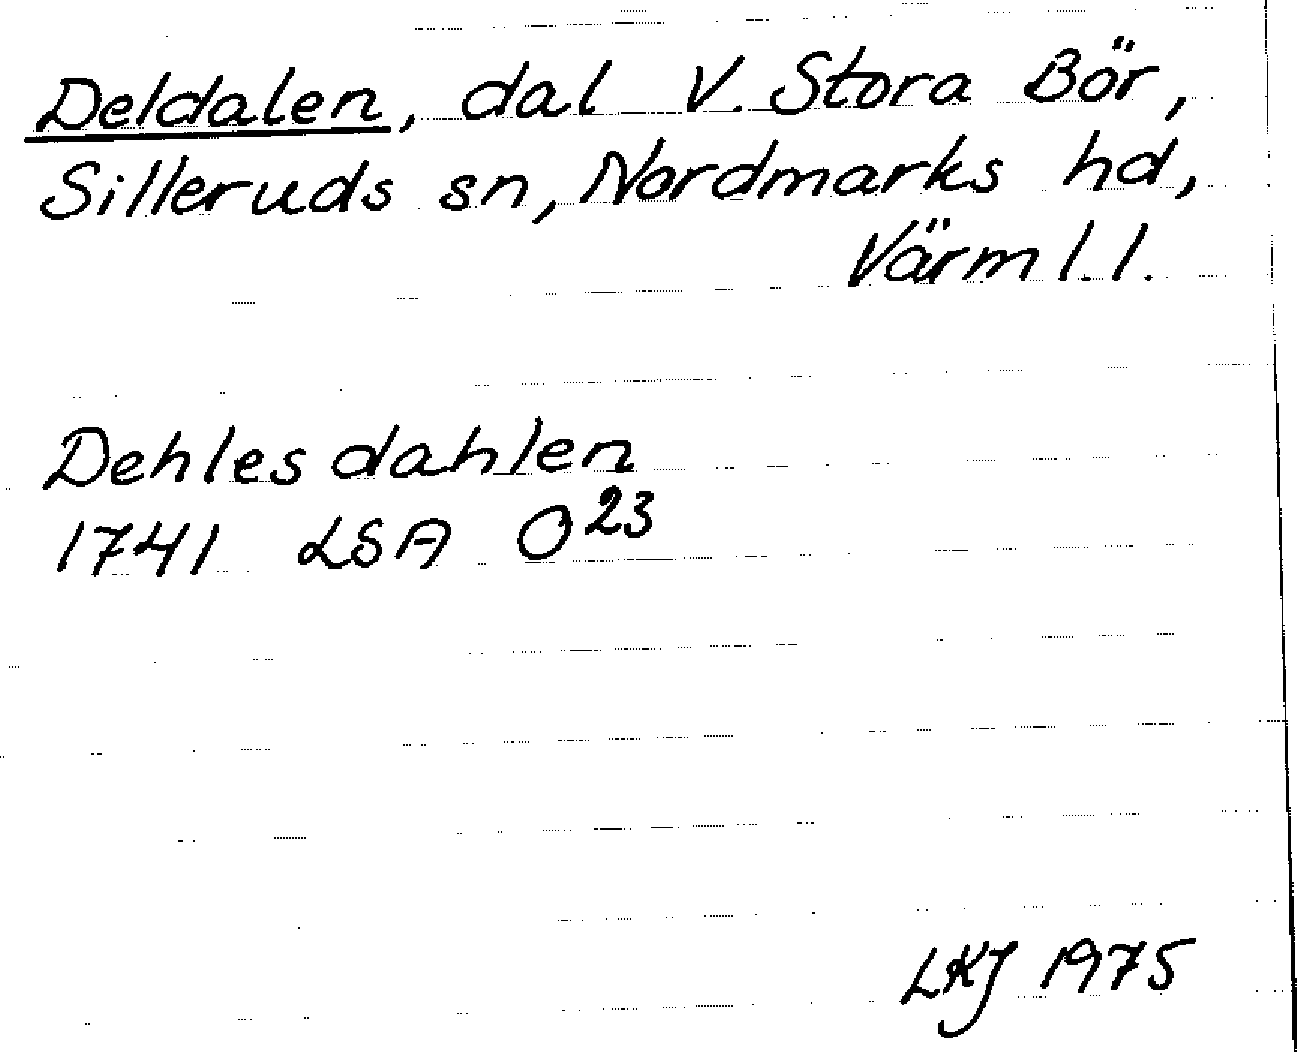 Deldalen, dal V. Stora Bör,
Silleruds sn, Nordmarks hd,
Värml. l.
Dehles dahlen
1741 LSA O23
LKJ 1975